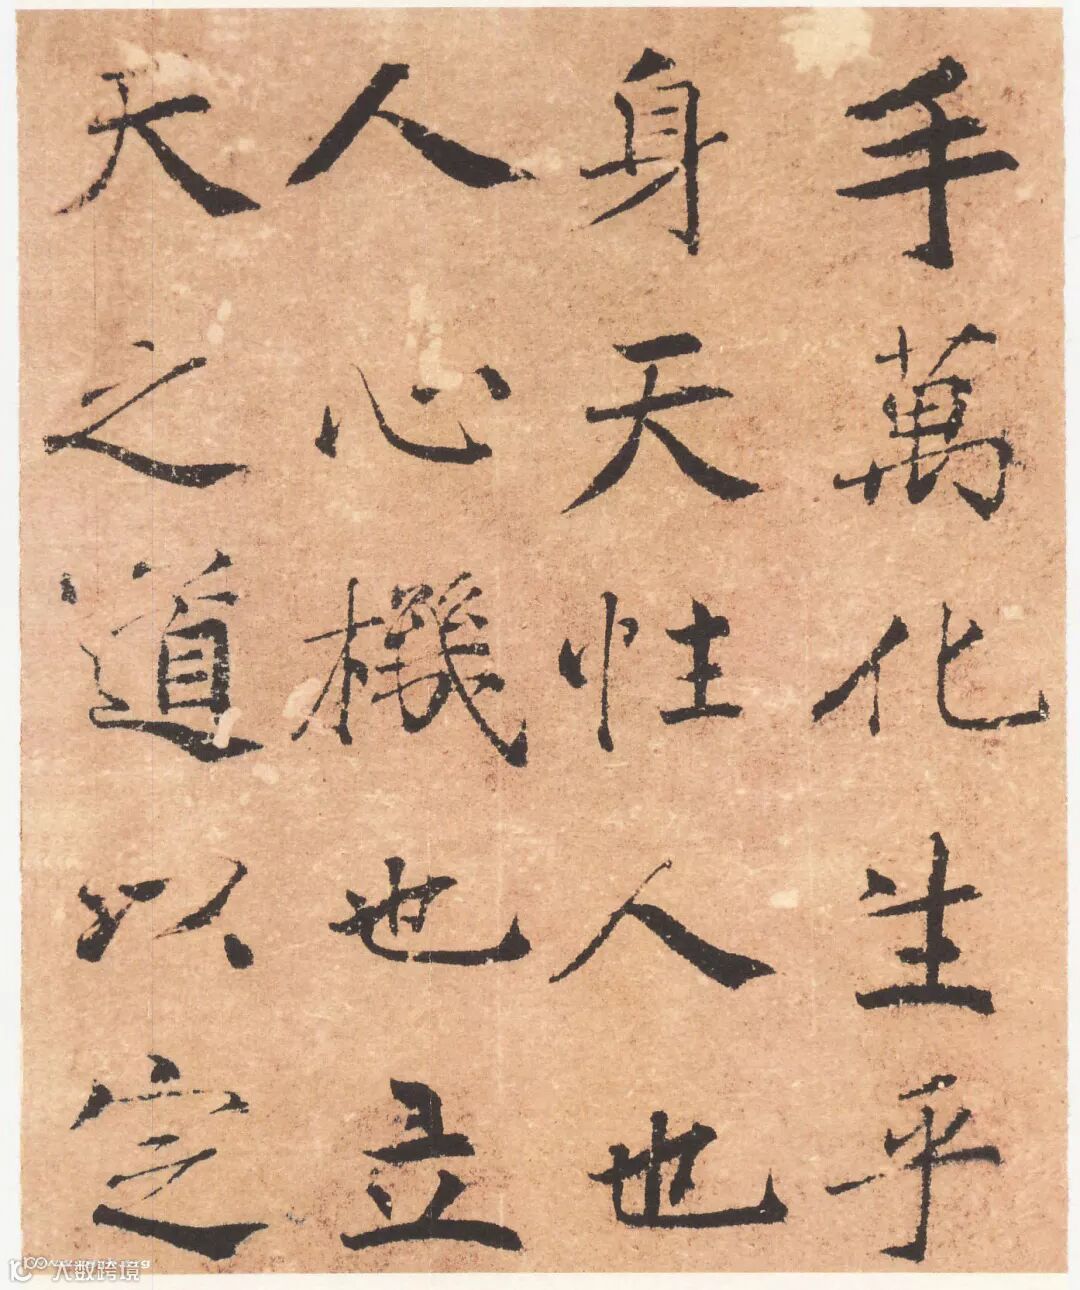 手萬化生乎
身天性人也
人心機也立
天之道以定
大数跨境